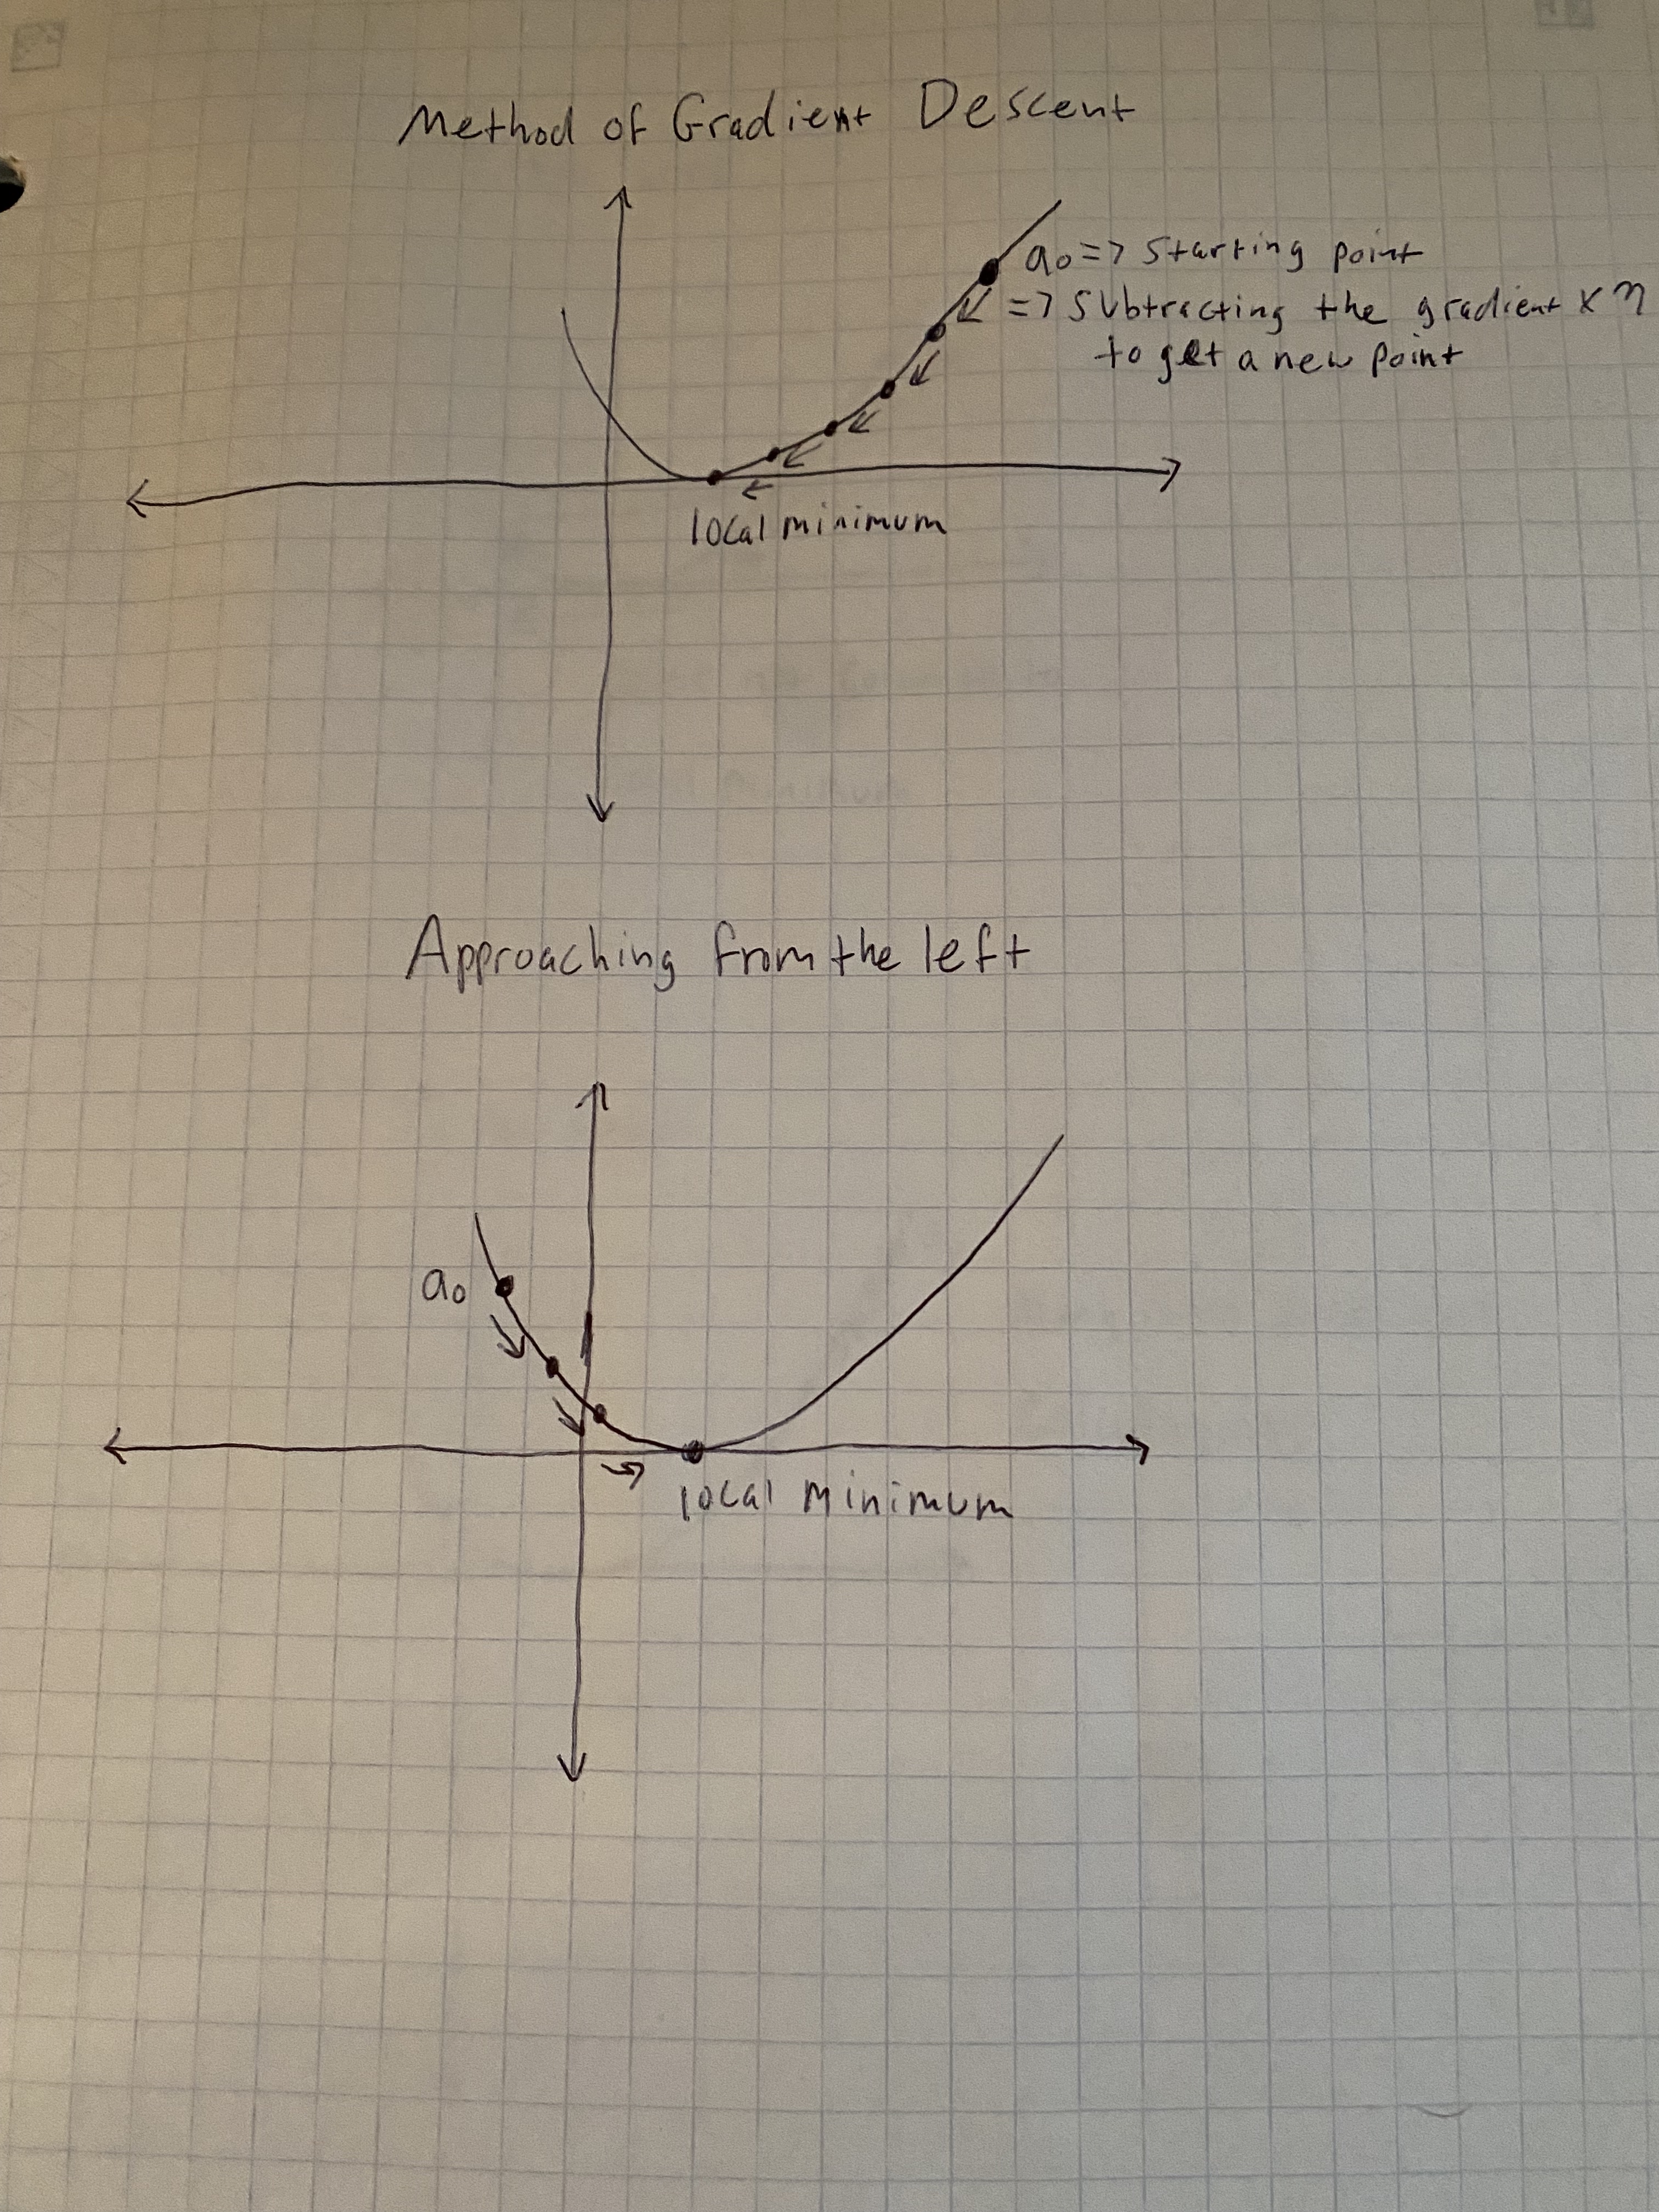 Method of Gradient Descent
a₀ => Starting point
=> Subtracting the gradient × η
to get a new point
local minimum
Approaching from the left
a₀
local minimum